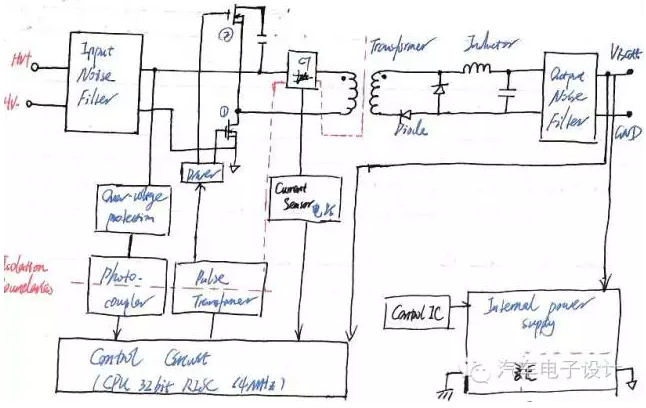 Input
Noise
Filter
HV+
HV-
②
①
CT
Transformer
Inductor
Output
Noise
Filter
VBatt
GND
Diode
Driver
Over-voltage
protection
Current
Sensor
Isolation
boundaries
Photo-
coupler
Pulse
Transformer
Control IC
Internal power
supply
Control Circuit
(CPU 32bit RISC (4MHz)
汽车电子设计